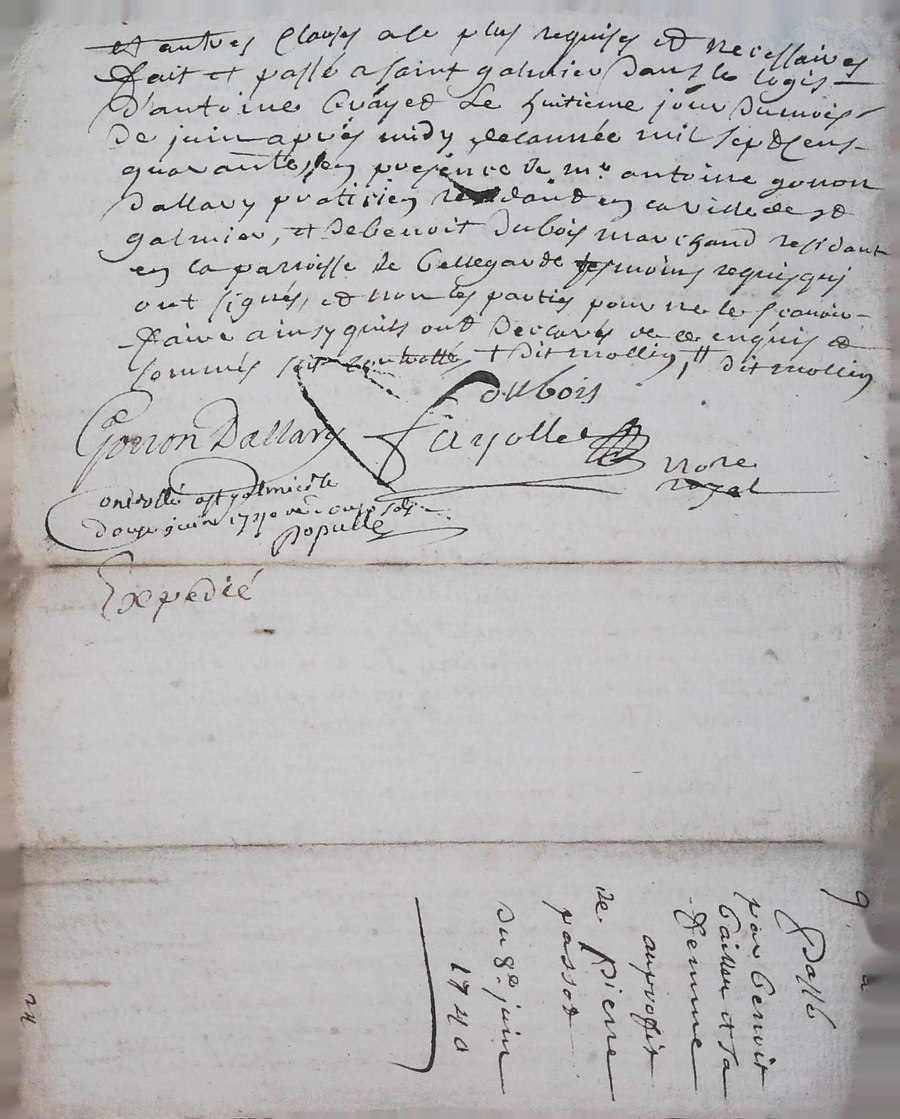 et autres clauses a ce plus requises et necessaires
fait et passé a saint galmier dans le logis
d'antoine le huitieme jour du mois
de juin apres midy de lannée mil sept cens
quarante, en presence de mr antoine gonon
dallary praticien residant en la ville de st
galmier, et de benoit dubois marchand residant
en la parroisse de bellegarde tesmoins requis qui
ont signés, et non les parties pour ne le scavoir
faire ainsy quils ont declarés de ce enquis et
sommés soit controllé, + dit mollin, †† dit mollin
dubois
Gonon Dallary
fayolle
nore
royal
controllé a st galmier le
douze juin 1740
populle
Expedié
par benoit
et sa
femme
au proffit
de pierre
passot
du 8e juin
1740